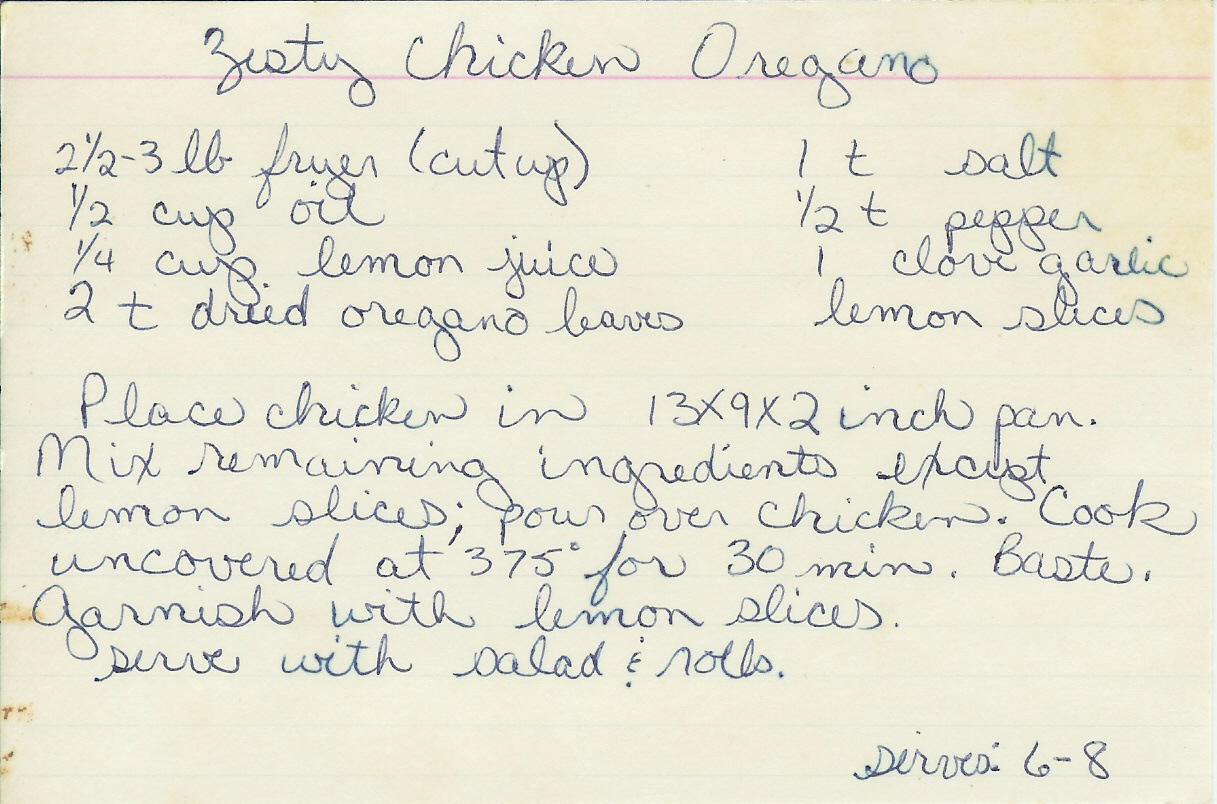 Zesty Chicken Oregano
2 1/2-3 lb fryer (cut up)
1/2 cup oil
1/4 cup lemon juice
2 t dried oregano leaves
1 t salt
1/2 t pepper
1 clove garlic
lemon slices
Place chicken in 13X9X2 inch pan.
Mix remaining ingredients except
lemon slices; pour over chicken. Cook
uncovered at 375° for 30 min. Baste.
Garnish with lemon slices.
Serve with salad & rolls.
Serves: 6-8